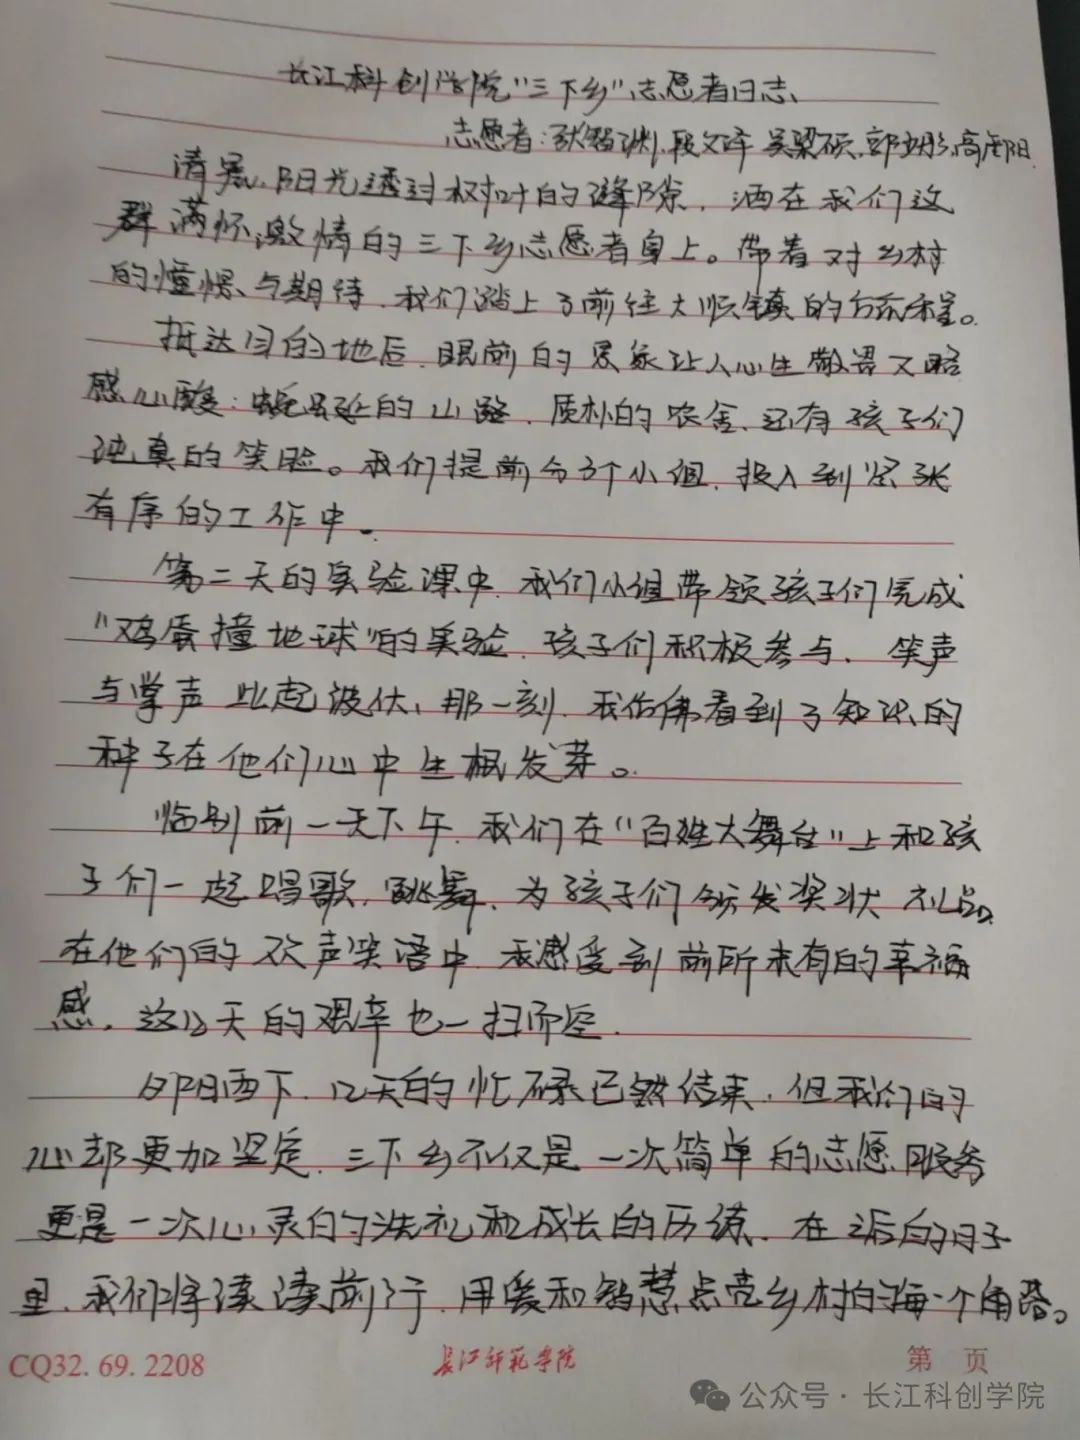 长江科创学院"三下乡"志愿者日志
志愿者:张智渊、段文泽 吴梁硕、郭、高
清晨,阳光透过树叶的缝隙,洒在我们这
群满怀激情的三下乡志愿者身上。带着对乡村
的憧憬与期待,我们踏上了前往大顺镇的旅程。
抵达目的地后,眼前的景象让人心生敬畏又略
感心酸:蜿蜒的山路,质朴的农舍,还有孩子们
纯真的笑脸。我们提前分了个小组,投入到紧张
有序的工作中。
第二天的实验课中,我们小组带领孩子们完成
"鸡蛋撞地球"的实验,孩子们积极参与、笑声
与掌声此起彼伏、那一刻,我仿佛看到了知识的
种子在他们心中生根发芽。
临别前一天下午,我们在"百姓大舞台"上和孩
子们一起唱歌,跳舞、为孩子们颁发奖状 礼品。
在他们的欢声笑语中,我感受到前所未有的幸福
感,这12天的艰辛也一扫而空.
夕阳西下,12天的忙碌已然结束,但我们的
心却更加坚定,三下乡不仅是一次简单的志愿服务
更是一次心灵的洗礼和成长的历练、在之后的日子
里,我们将继续前行,用爱和智慧点亮乡村的每一个角落。
CQ32.69.2208
长江师范学院
第 页
公众号·长江科创学院